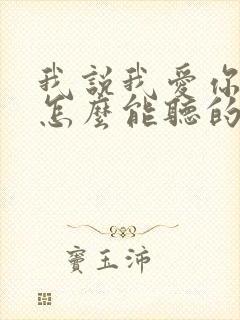 我說我愛你
怎麼能聽的
竇玉沛